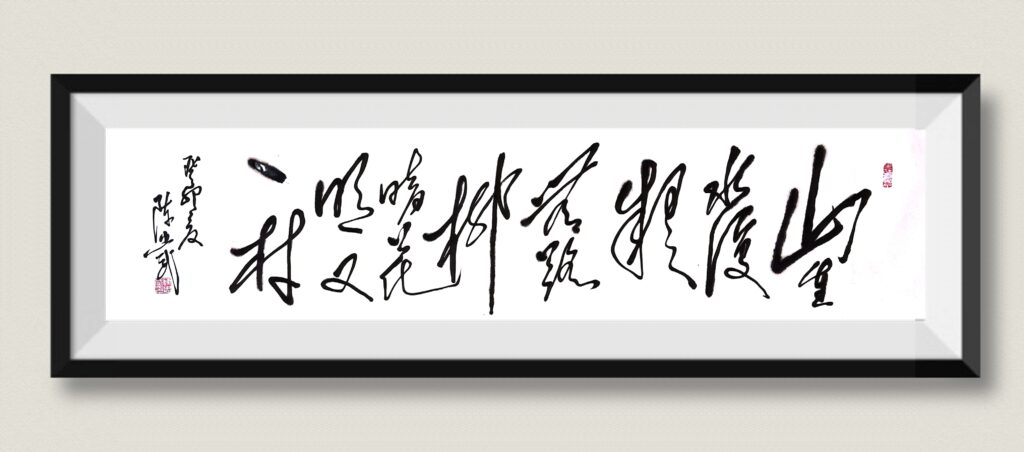 山重
水復
疑
無路
柳
暗花
明又
一村
癸卯之夏
陈 武